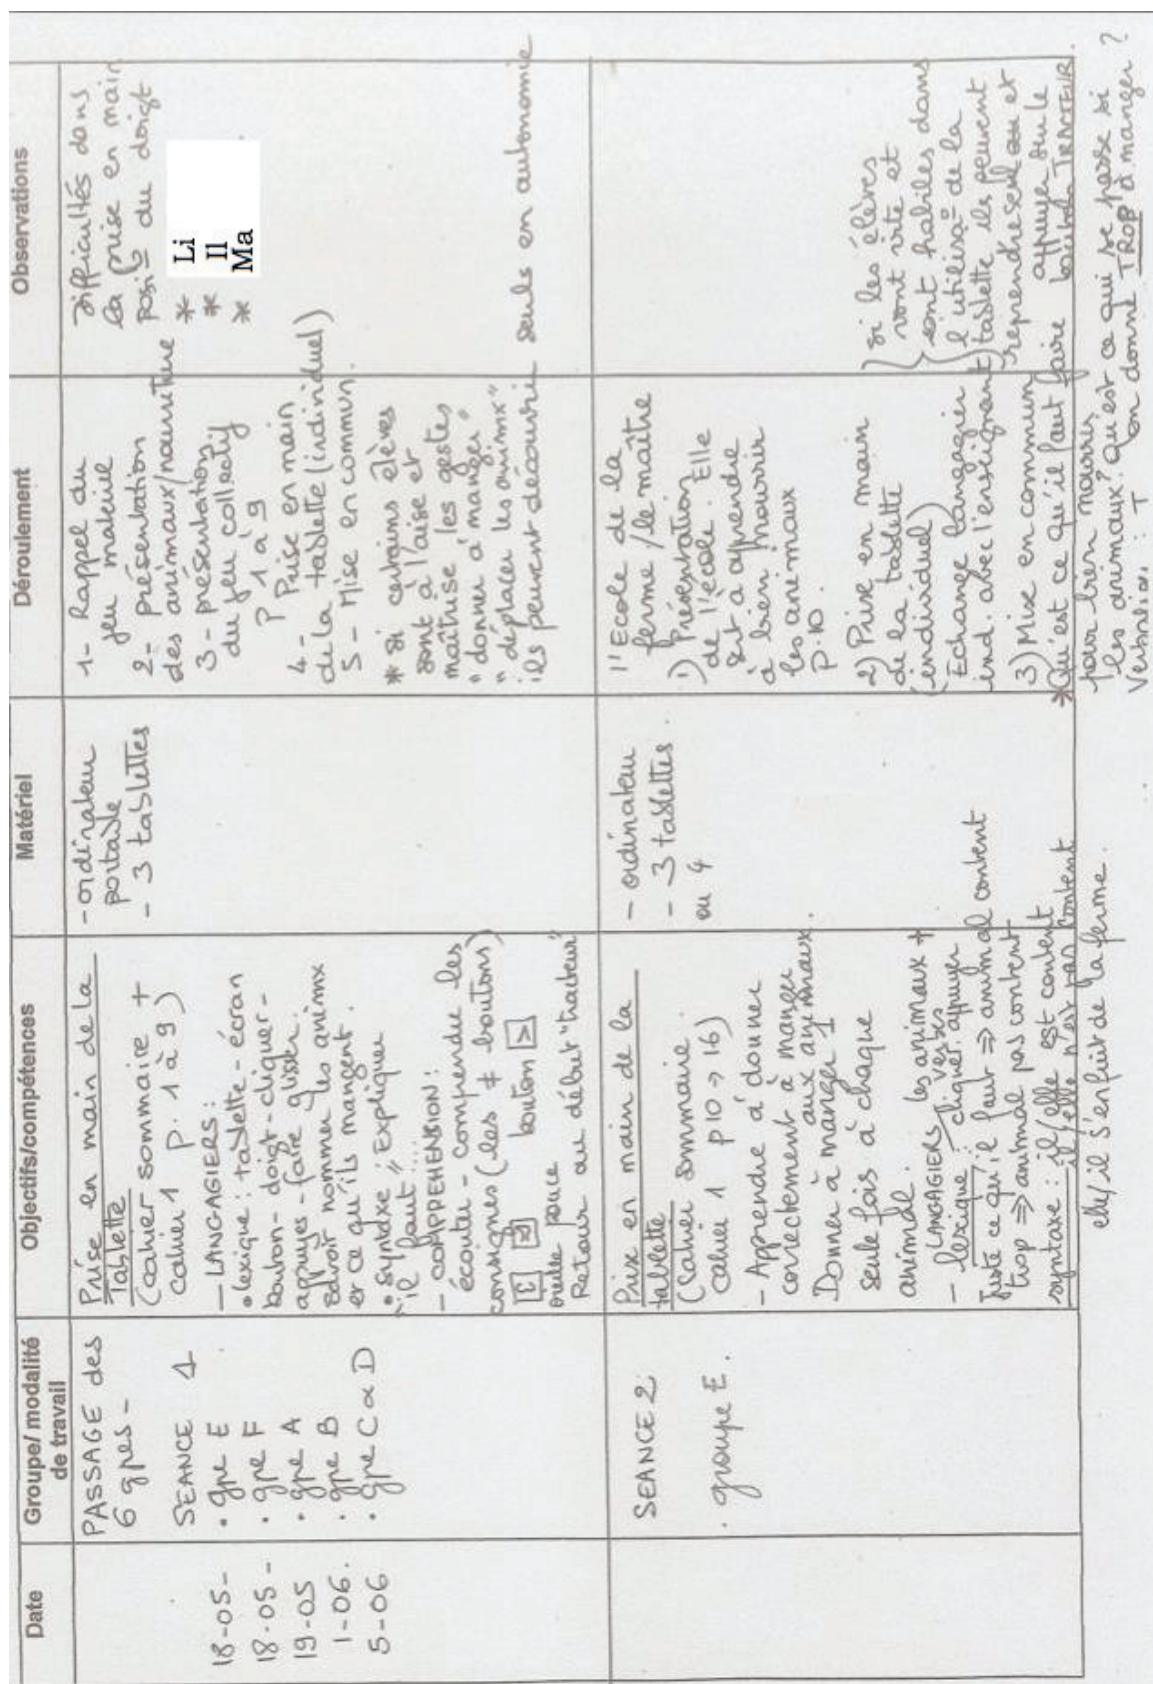 Date
Groupe/ modalité
de travail
Objectifs/compétences
Matériel
Déroulement
Observations
18-05-
18-05-
19-05
1-06.
5-06
PASSAGE des
6 gpes-
SEANCE 1
• gpe E
• gpe F
• gpe A
• gpe B
• gpe C & D
Prise en main de la
Tablette
(cahier sommaire +
cahier 1 p. 1 à 9)
— LANGAGIERS:
• lexique: tablette - écran
bouton - doigt - cliquer -
appuyer - faire glisser.
savoir nommer les animx
et ce qu'ils mangent.
• syntaxe: Expliquer
"il faut"...
- COMPREHENSION:
écouter - comprendre les
consignes (les ≠ boutons)
bouton >
oreille pouce
Retour au début "tracteur"
-ordinateur
portable
- 3 tablettes
1- Rappel du
jeu matériel
2- présentation
des animaux/nourriture
3- présentation
du jeu collectif
P 1 à 9
4- Prise en main
de la tablette (individuel)
5- Mise en commun.
* si certains élèves
sont à l'aise et
maîtrise les gestes
"donner à manger"
"déplacer les animx"
ils peuvent découvrir seuls en autonomie
Difficultés dans
la prise en main
posi° du doigt
* Li
* Il
* Ma
SEANCE 2
. groupe E.
Prise en main de la
tablette
(Cahier sommaire.
Cahier 1 p10 → 16)
- Apprendre à donner
correctement à manger
aux animaux.
Donner à manger 1
seule fois à chaque
animal.
LANGAGIERS
- lexique: les animaux +
verbes cliquer. appuyer
Juste ce qu'il faut ⇒ animal content
trop ⇒ animal pas content
syntaxe: il/elle est content
il/elle n'est pas content
elle/il s'enfuit de la ferme.
- ordinateur
- 3 tablettes.
ou 4
1'Ecole de la
ferme/le maître
1) Présentation
de l'école. Elle
sert à apprendre
à bien nourrir
les animaux
P.10.
2) Prise en main
de la tablette
(individuel)
Echange langagier
ind. avec l'enseignant
3) Mise en commun
*Qu'est ce qu'il faut faire
pour bien nourrir
les animaux? Qu'est ce qui se passe si
on donne TROP à manger?
si les élèves
vont vite et
sont habiles dans
l'utilisa° de la
tablette ils peuvent
reprendre seul et
appuyer sur le
bouton TRACTEUR.